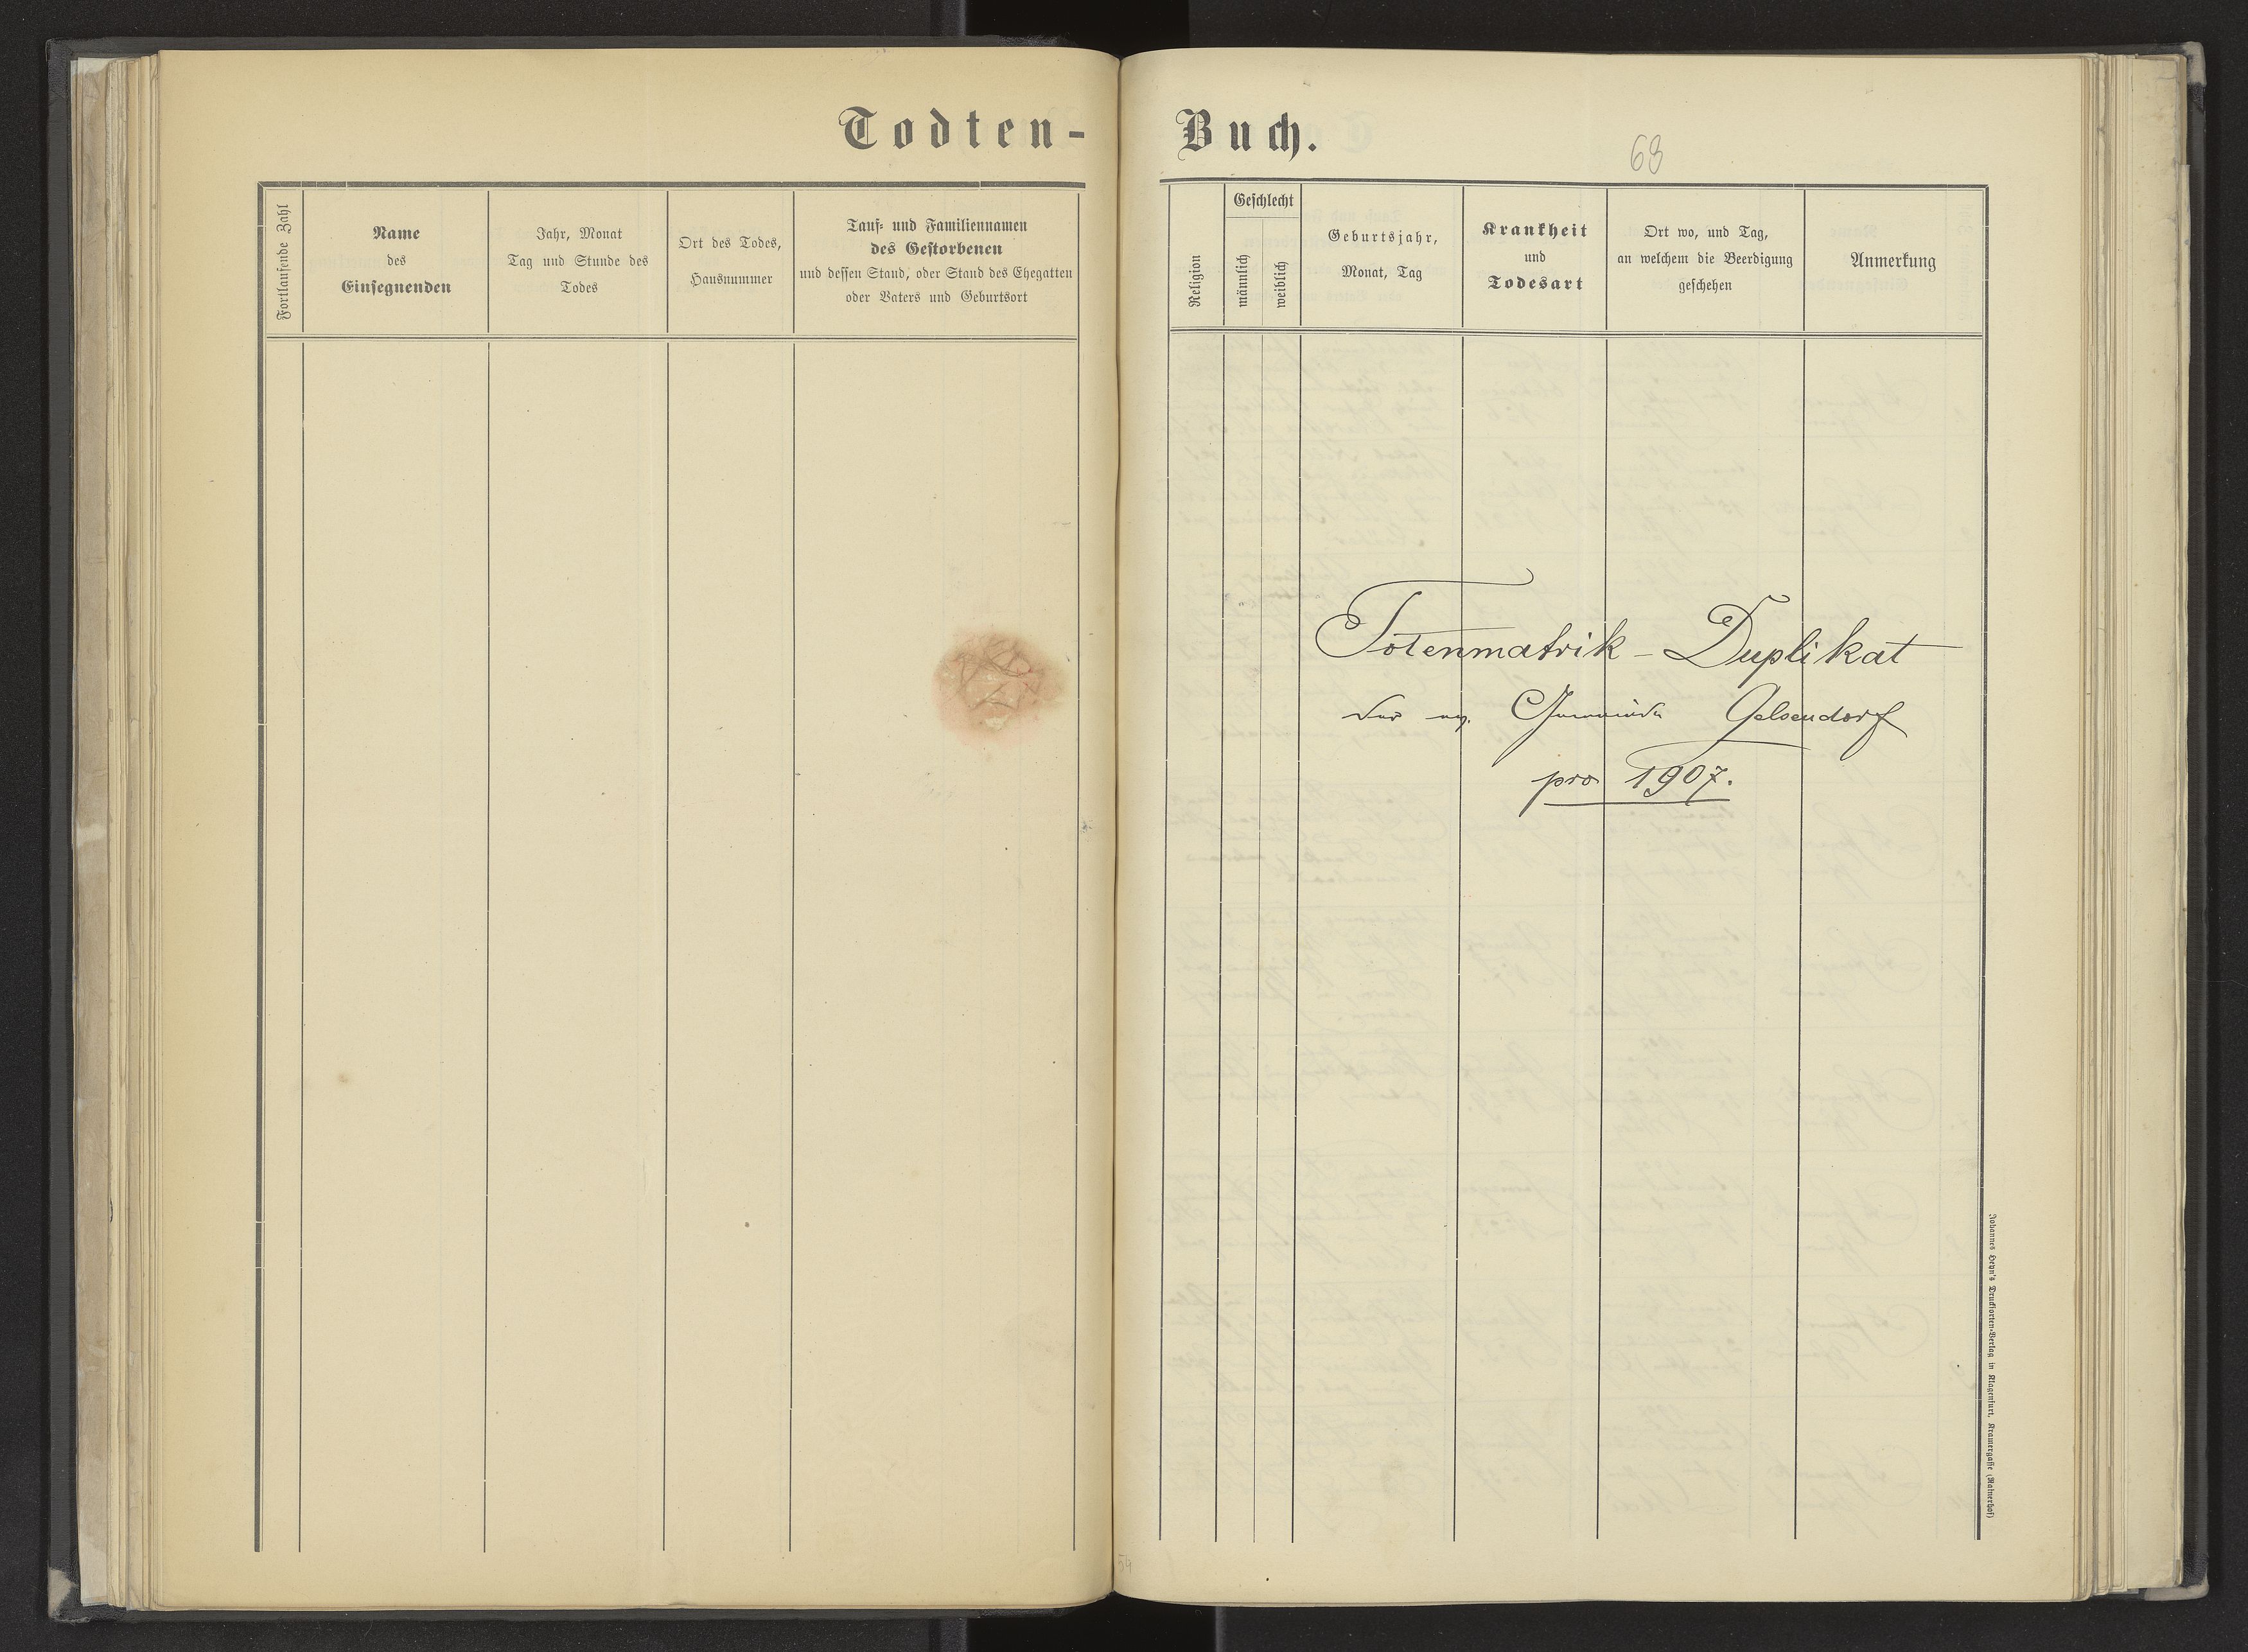 Todten-
Fortlaufende Zahl
Name
des
Einsegnenden
Jahr, Monat
Tag und Stunde des
Todes
Ort des Todes,
Hausnummer
Tauf- und Familiennamen
des Gestorbenen
und dessen Stand, oder Stand des Ehegatten
oder Vaters und Geburtsort
Buch.
63
Religion
Geschlecht
männlich
weiblich
Geburtsjahr,
Monat, Tag
Krankheit
und
Todesart
Ort wo, und Tag,
an welchem die Beerdigung
geschehen
Anmerkung
Totenmatrik - Duplikat
der ev. Gemeinde Gelsendorf
pro 1907.
Johannes Heyn's Drucksorten-Verlag in Klagenfurt, Kramergasse (Rainerhof)